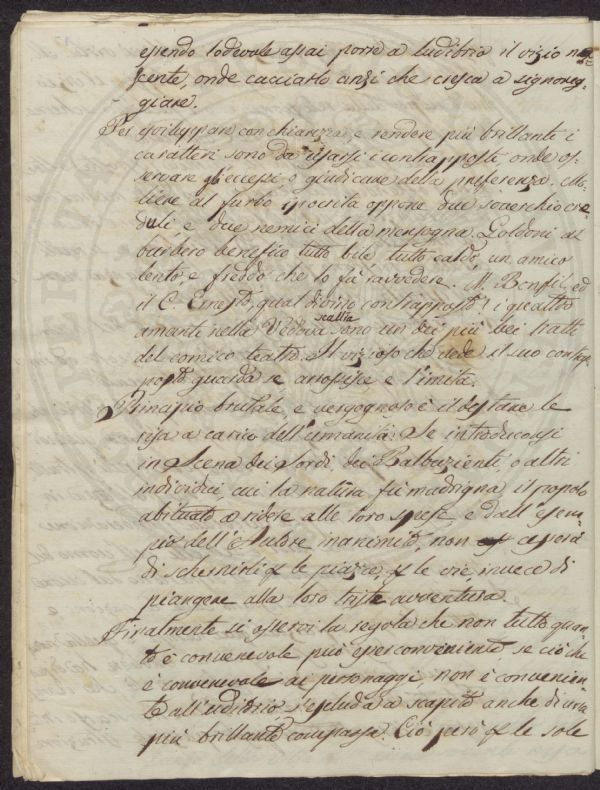 essendo lodevole assai porre a ludibrio il vizio na-
scente, onde cacciarlo anzi che cresca a signoreg-
giare.
Per isviluppare con chiarezza, e rendere più brillanti i
caratteri sono da usarsi i contrapposti, onde os-
servare gli eccessi o giudicare della preferenza. Mo-
liere al furbo ipocrita oppone due soverchio cre-
duli, e due nemici della menzogna. Goldoni al
burbero benefico tutto bile tutto caldo, un amico
lento, e freddo che lo fà ravvedere. M. Bonfil, ed
il C. Ernesto, qual divino contrapposto! i quattro
amanti nella Vedova scaltra sono un dei più bei tratti
del comico teatro. Il vizioso che vede il suo contrap-
posto guarda se arrossisce e l'imita.
Principio brutale, e vergognoso è il destare le
risa a carico dell'umanità. Se introduconsi
in Scena dei Sordi, dei Balbuzienti, o altri
individui, cui la natura fù madrigna, il popolo
abituato a ridere alle loro spese, e dall'esem-
pio dell'Autore inanimito, non cesserà
di schernirli p le piazze, p le vie, invece di
piangere alla loro trista avventura.
Finalmente si osservi la regola che non tutto quan-
to è convenevole può esser conveniente se ciò che
è convenevole ai personaggi non è convenien-
te all'uditorio s'escluda a scapito anche di una
più brillante comparsa. Ciò però p le sole